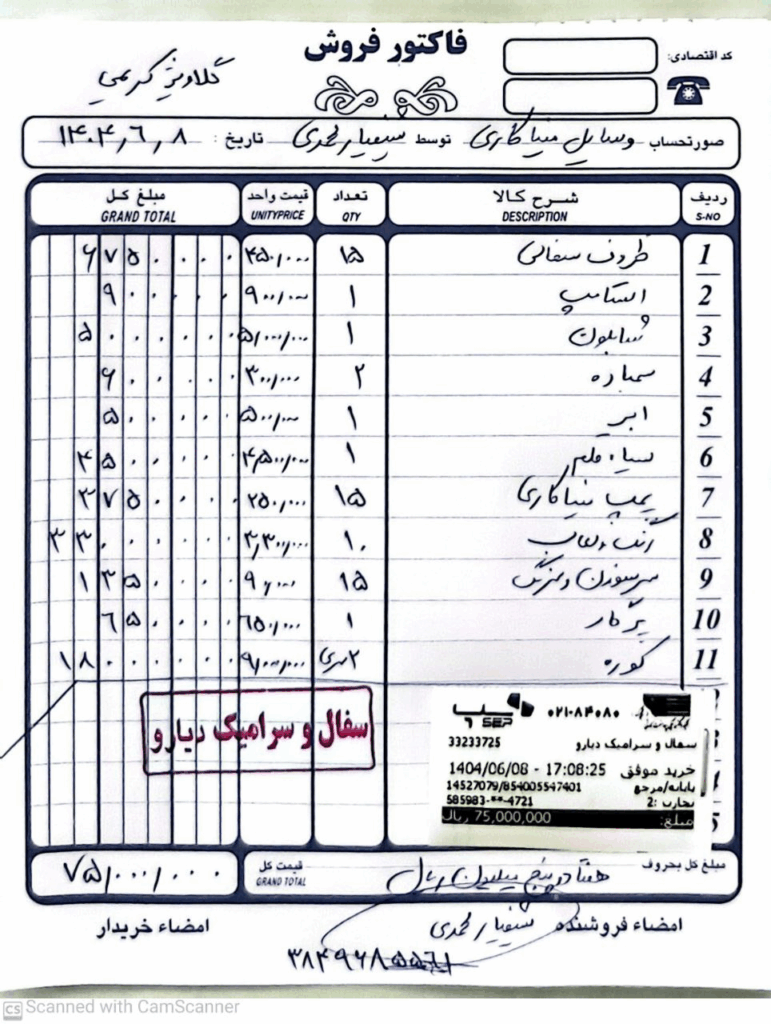 فاکتور فروش
کد اقتصادی:
گلاویژ کریمی
صورتحساب وسایل میناکاری توسط شهریار محمدی تاریخ: ۱۴۰۴,۶,۸
ردیف S-NO شرح کالا DESCRIPTION تعداد QTY قیمت واحد UNITYPRICE مبلغ کل GRAND TOTAL
1 ظروف سفالی ۱۵ ۴۵۰,۰۰۰ ۶۷۵۰۰۰۰
2 استامپ ۱ ۹۰۰,۰۰۰ ۹۰۰۰۰۰
3 شابلون ۱ ۵,۰۰۰,۰۰۰ ۵۰۰۰۰۰۰
4 سمباده ۲ ۳۰۰,۰۰۰ ۶۰۰۰۰۰
5 ابر ۱ ۵۰۰,۰۰۰ ۵۰۰۰۰۰
6 سیاه قلم ۱ ۴,۵۰۰,۰۰۰ ۴۵۰۰۰۰۰
7 پمپ میناکاری ۱۵ ۲۵۰,۰۰۰ ۳۷۵۰۰۰۰
8 رنگ و لعاب ۱۰ ۳,۳۰۰,۰۰۰ ۳۳۰۰۰۰۰۰
9 سرسوزن و سرنگ ۱۵ ۹۰,۰۰۰ ۱۳۵۰۰۰۰
10 پرگار ۱ ۶۵۰,۰۰۰ ۶۵۰۰۰۰
11 کوره ۲ سری ۹,۰۰۰,۰۰۰ ۱۸۰۰۰۰۰۰
سفال و سرامیک دیارو
سپ SEP ۰۲۱-۸۴۰۸۰
سفال و سرامیک دیارو 33233725
خرید موفق 1404/06/08 - 17:08:25
پایانه/مرجع 14527079/854005547401
تجارت :2 585983-**-4721
مبلغ: 75,000,000 ریال
مبلغ کل بحروف هفتاد و پنج میلیون ریال قیمت کل GRAND TOTAL ۷۵,۰۰۰,۰۰۰
امضاء فروشنده شهریار محمدی امضاء خریدار
CS Scanned with CamScanner